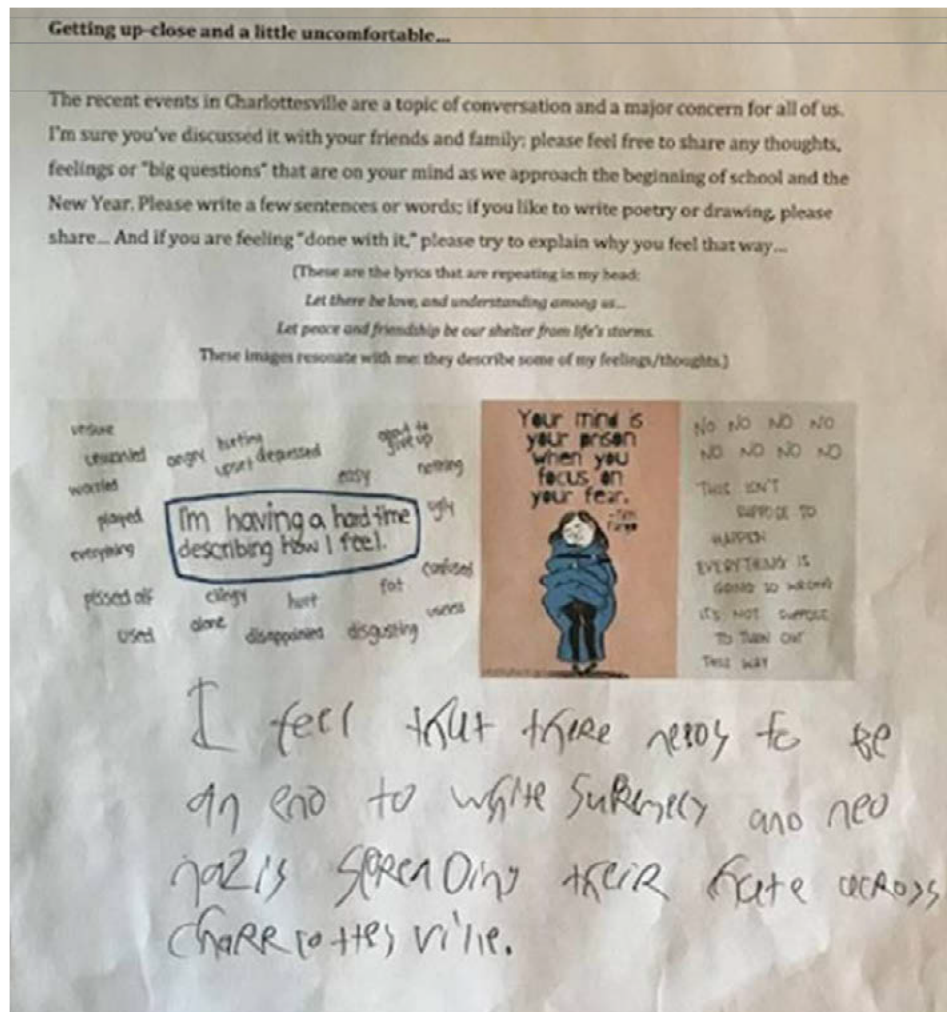 Getting up-close and a little uncomfortable...
The recent events in Charlottesville are a topic of conversation and a major concern for all of us.
I'm sure you've discussed it with your friends and family; please feel free to share any thoughts,
feelings or "big questions" that are on your mind as we approach the beginning of school and the
New Year. Please write a few sentences or words; if you like to write poetry or drawing, please
share... And if you are feeling "done with it," please try to explain why you feel that way...
(These are the lyrics that are repeating in my head:
Let there be love, and understanding among us...
Let peace and friendship be our shelter from life's storms.
These images resonate with me: they describe some of my feelings/thoughts.)
angry hurting upset depressed
good to give up
worried
easy
nothing
played
I'm having a hard time
describing how I feel.
ugly
everything
confused
pissed off
clingy
hurt
fat
used
alone
disappointed
disgusting
Your mind is
your prison
when you
focus on
your fear.
NO NO NO NO
NO NO NO NO
THIS ISN'T
SUPPOSE TO
HAPPEN
EVERYTHING IS
GOING SO WRONG
IT'S NOT SUPPOSE
TO TURN OUT
THIS WAY
I feel that there needs to be
an end to white
and neo
nazis spreading their hate across